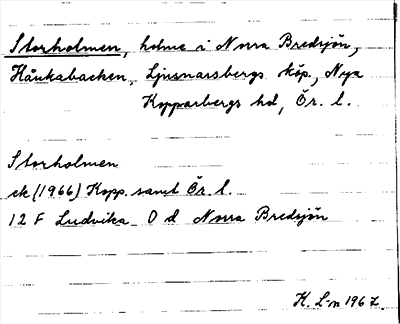 Storholmen, holme i Norra Bredsjön,
Håukabacken, Ljusnarsbergs köp., Nya
Kopparbergs hd, Ör. l.
Storholmen
ek (1966) Kopp. samt Ör. l.
12 F Ludvika O d Norra Bredsjön
K. L-n 1967.